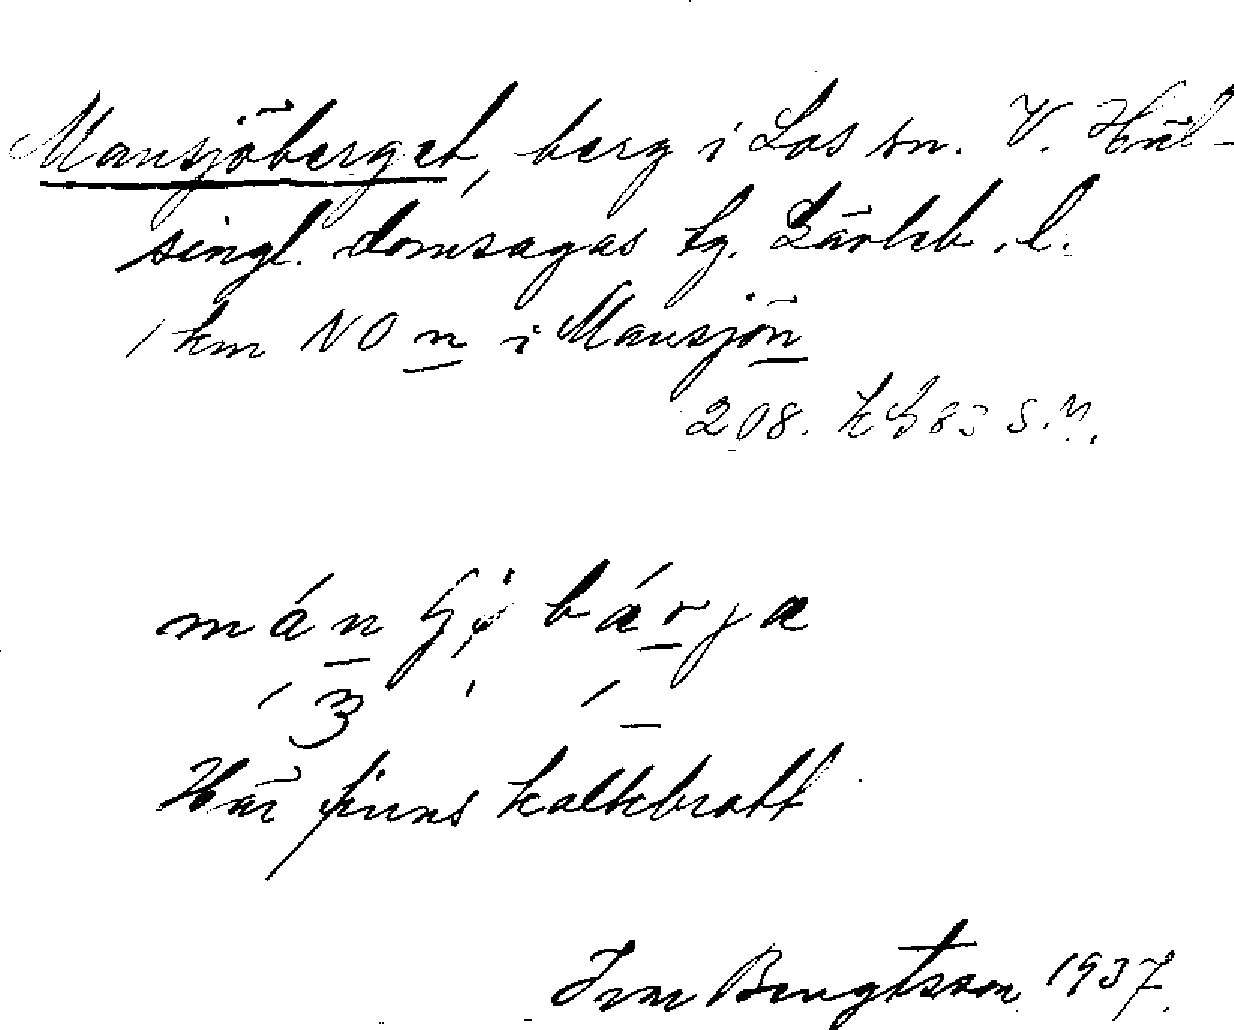 Mansjöberget, berg i Los sn. V. Häl-
singl. domsagas tg. Gävleb. l.
1 km NO n i Mansjön
208. S.M.
Här finns kalkbrott
Bengtsson 1937.